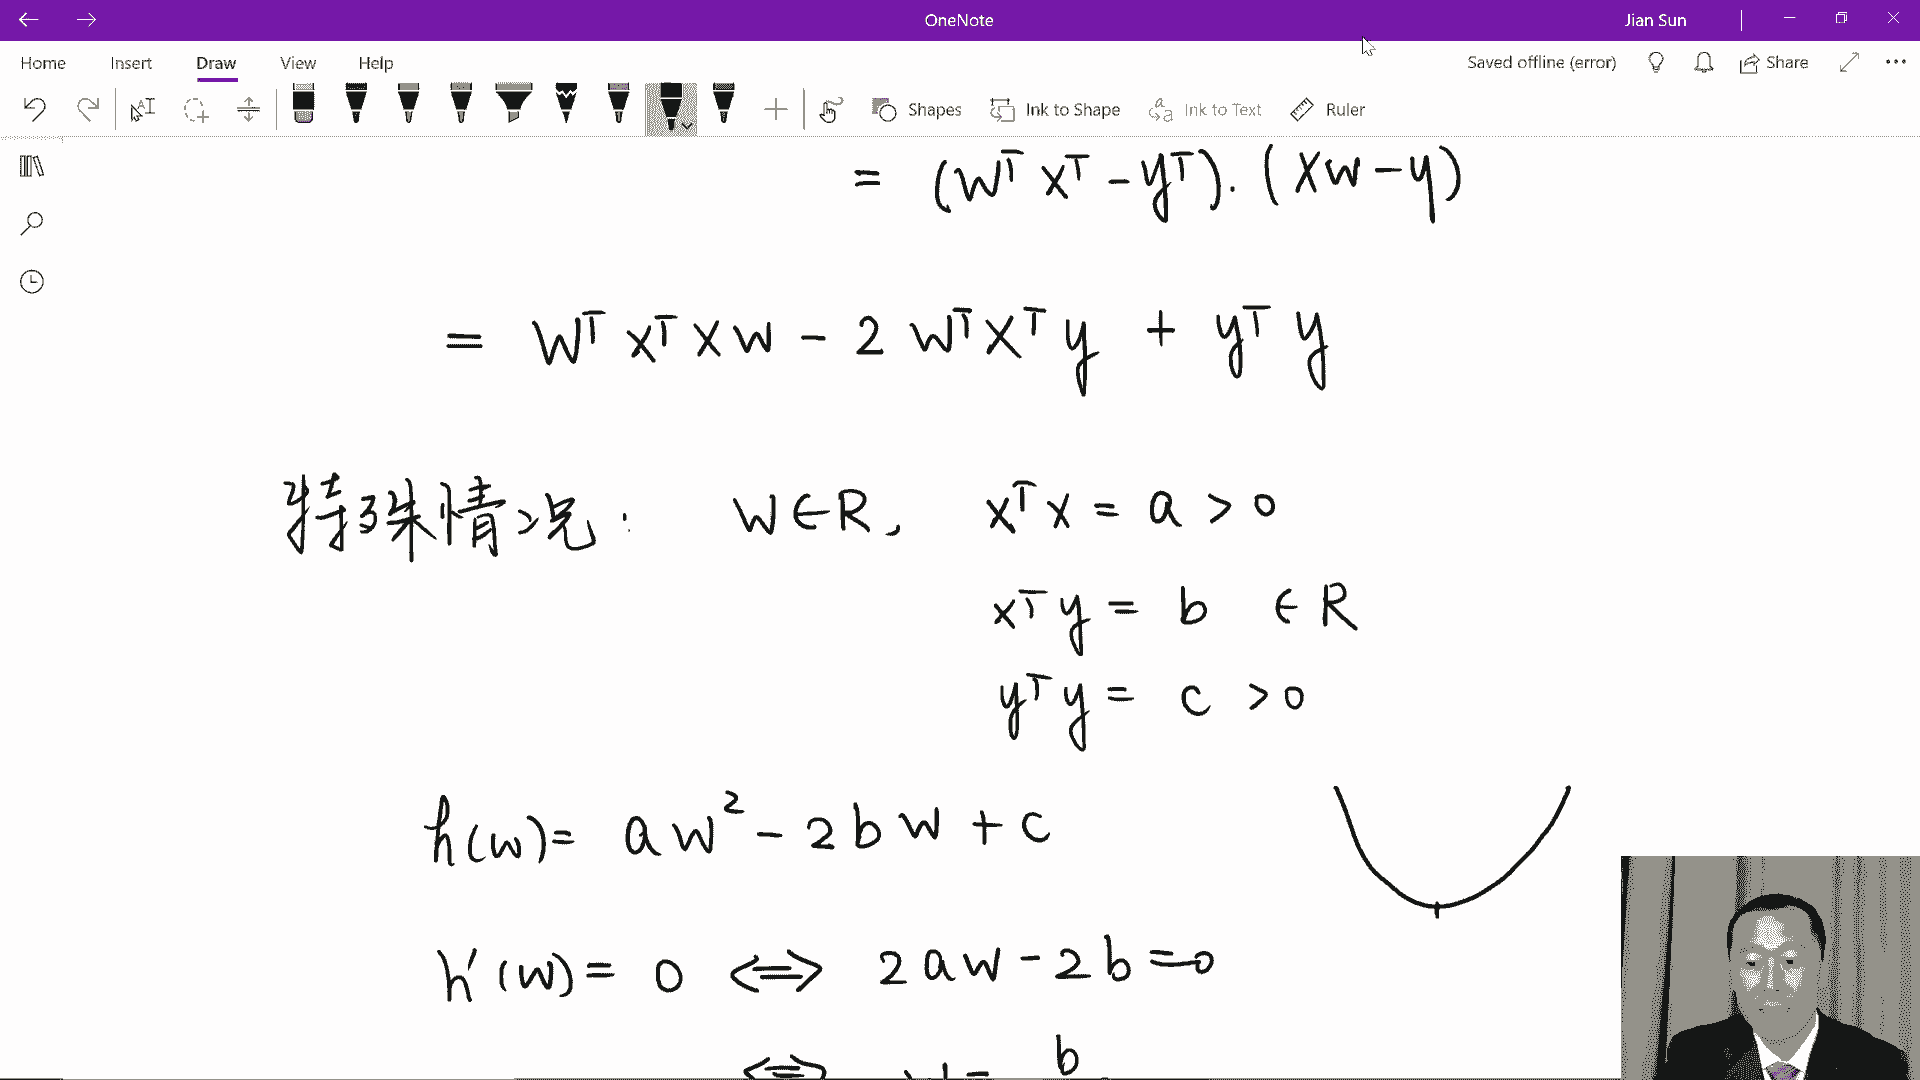 OneNote
Jian Sun
Home Insert Draw View Help
Saved offline (error) Share
Shapes Ink to Shape Ink to Text Ruler
= (Wᵀ Xᵀ - yᵀ). (Xw - y)
= Wᵀ Xᵀ X w - 2 wᵀ Xᵀ y + yᵀ y
特殊情况: W ∈ R, xᵀ x = a > 0
xᵀ y = b ∈ R
yᵀ y = c > 0
h(w) = a w² - 2 b w + c
h'(w) = 0 ⟺ 2 a w - 2 b = 0
⟺ w = b